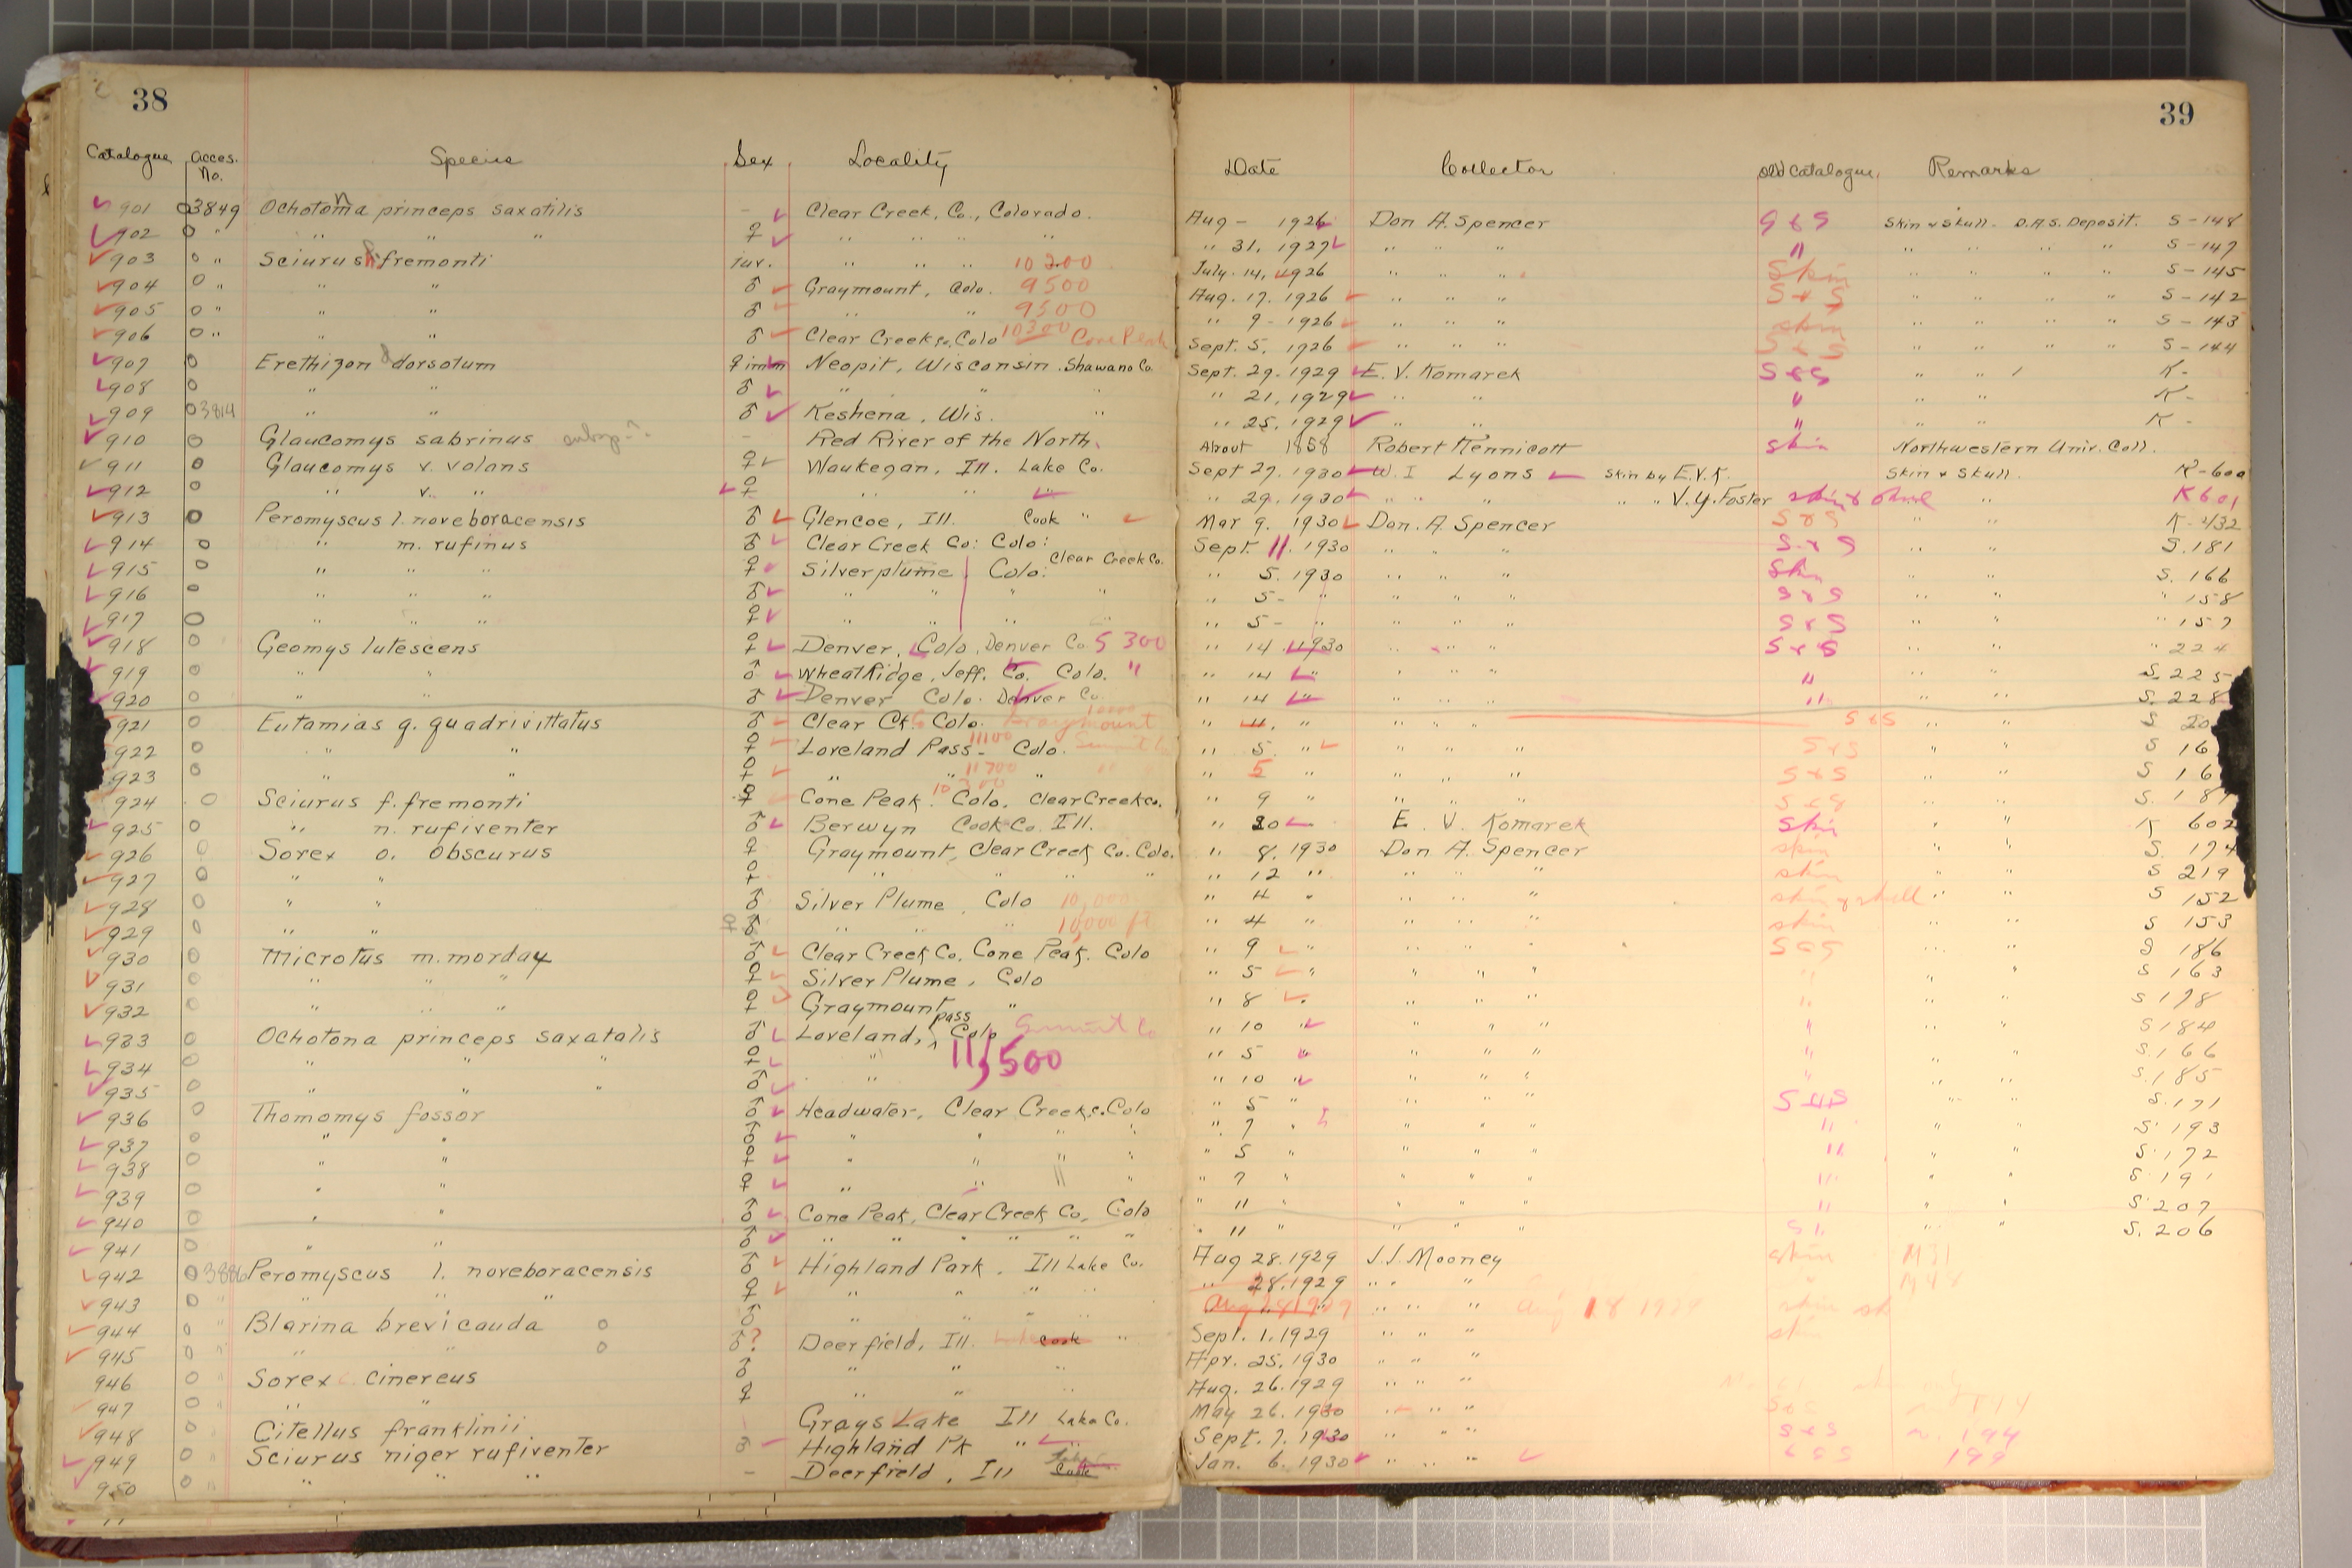 38
39
Catalogue Acces. No. Species Sex Locality Date Collector Old Catalogue Remarks
901 O3849 Ochotona princeps saxatilis - Clear Creek, Co., Colorado. Aug - 1926 Don A. Spencer S & S Skin & Skull - D.A.S. Deposit. S-148
902 O " " " " ♀ " " " " " 31. 1927 " " " " " " " " S-147
903 O " Sciurus f. fremonti Juv. " " " 10200 July. 14, 1926 " " " Skin " " " " S-145
904 O " " " ♂ Graymount, Colo. 9500 Aug. 17. 1926 " " " S & S " " " " S-142
905 O " " " ♂ " " 9500 " 9-1926 " " " skin " " " " S-143
906 O " " " ♂ Clear Creek Co. Colo 10300 Cone Peak Sept. 5. 1926 " " " S & S " " " " S-144
907 O Erethizon dorsotum ♀ imm Neopit, Wisconsin. Shawano Co. Sept. 29. 1929 E. V. Komarek S & S " " K-
908 O " " ♂ " " " " 21, 1929 " " " " " K-
909 O3814 " " ♂ Keshena, Wis. " " 25. 1929 " " " " " K-
910 O Glaucomys sabrinus subsp-?. - Red River of the North. About 1858 Robert Kennicott skin Northwestern Univ. Coll.
911 O Glaucomys v. volans ♀ Waukegan, Ill. Lake Co. Sept 27. 1930 W. I Lyons Skin by E.V.K. Skin & Skull. K-600
912 O " v. " ♀ " " " " 29. 1930 " " " " V.Y. Foster skin & skull " K601
913 O Peromyscus l. noveboracensis ♂ Glencoe, Ill. Cook " Mar 9. 1930 Don. A Spencer S & S " " K-432
914 O " m. rufinus ♂ Clear Creek Co: Colo: Sept. 11. 1930 " " " S & S " " S.181
915 O " " " ♀ Silverplume, Colo: Clear Creek Co. " 5. 1930 " " " Skin " " S. 166
916 O " " " ♂ " " " " " 5- " " " " S & S " " " 158
917 O " " " ♀ " " " " " 5- " " " " S & S " " " 157
918 O Geomys lutescens ♀ Denver, Colo, Denver Co. 5300 " 14. 1930 " " " S & S " " " 224
919 O " " ♂ Wheat Ridge, Jeff. Co. Colo. " " 14 " " " " " " " S. 225
920 O " " ♂ Denver Colo. Denver Co. " 14 " " " " " " " S. 228
921 O Eutamias q. quadrivittatus ♂ Clear Ck. Colo. Graymount " 11. " " " " S & S " " S
922 O " " ♀ Loveland Pass- Colo. 11100 " 5. " " " " S & S " " S 16
923 O " " ♀ " " " 11700 " 5 " " " " S & S " " S 16
924 O Sciurus f. fremonti ♀ Cone Peak. Colo. Clear Creek Co. 10300 " 9 " " " " S & S " " S. 187
925 O " n. rufiventer ♂ Berwyn Cook Co. Ill. " 30 E. V. Komarek Skin " " K 602
926 O Sorex o. obscurus ♀ Graymount, Clear Creek Co. Colo. " 8. 1930 Don A. Spencer skin " " S. 174
927 O " " ♀ " " " " " 12 " " " " skin " " S 219
928 O " " ♂ Silver Plume, Colo 10,000 " 4 " " " " skin & skull " " S 152
929 O " " ♂ " " " 10,000 ft " 4 " " " " skin " " S 153
930 O Microtus m. morday ♂ Clear Creek Co. Cone Peak. Colo " 9 " " " S & S " " S 186
931 O " " " ♀ Silver Plume, Colo " 5 " " " " " " " S 163
932 O " " " ♀ Graymount " " 8 " " " " " " S 178
933 O Ochotona princeps saxatalis ♂ Loveland, pass Colo Summit Co " 10 " " " " " " " S 184
934 O " " " ♀ " 11,500 " 5 " " " " " " " S. 166
935 O " " " ♂ " " 10 " " " " " " " S. 185
936 O Thomomys fossor ♂ Headwater, Clear Creek, c. Colo " 5 " " " " S & S " " S. 171
937 O " " ♂ " " " " " 7 " " " " " " " S. 193
938 O " " ♀ " " " " " 5 " " " " " " " S. 172
939 O " " ♀ " " " " " 7 " " " " " " " S. 191
940 O " " ♂ Cone Peak, Clear Creek Co, Colo " 11 " " " " " " " S. 207
941 O " " ♂ " " " " " " 11 " " " " " " S. 206
942 O3886 Peromyscus l. noveboracensis ♂ Highland Park, Ill Lake Co. Aug 28. 1929 J.J. Mooney skin M31
943 O " " " " ♀ " " " " " 28. 1929 " " " M48
944 O " Blarina brevicauda o ♂ " " " " Aug 18 1929 " " " skin sk
945 O " " " o ♂? Deerfield, Ill. Cook " Sept. 1. 1929 " " " skin
946 O " Sorex c. cinereus ♂ " " " Apr. 25. 1930 " " "
947 O " " " ♀ " " " Aug. 26. 1929 " " "
948 O " Citellus franklinii Grays Lake Ill Lake Co. May 26. 1930 " " " S & S
949 O " Sciurus niger rufiventer ♂ Highland Pk " " Sept. 7. 1930 " " " S & S 194
950 O " " " " - Deerfield, Ill Jan. 6. 1930 " " " S & S 199